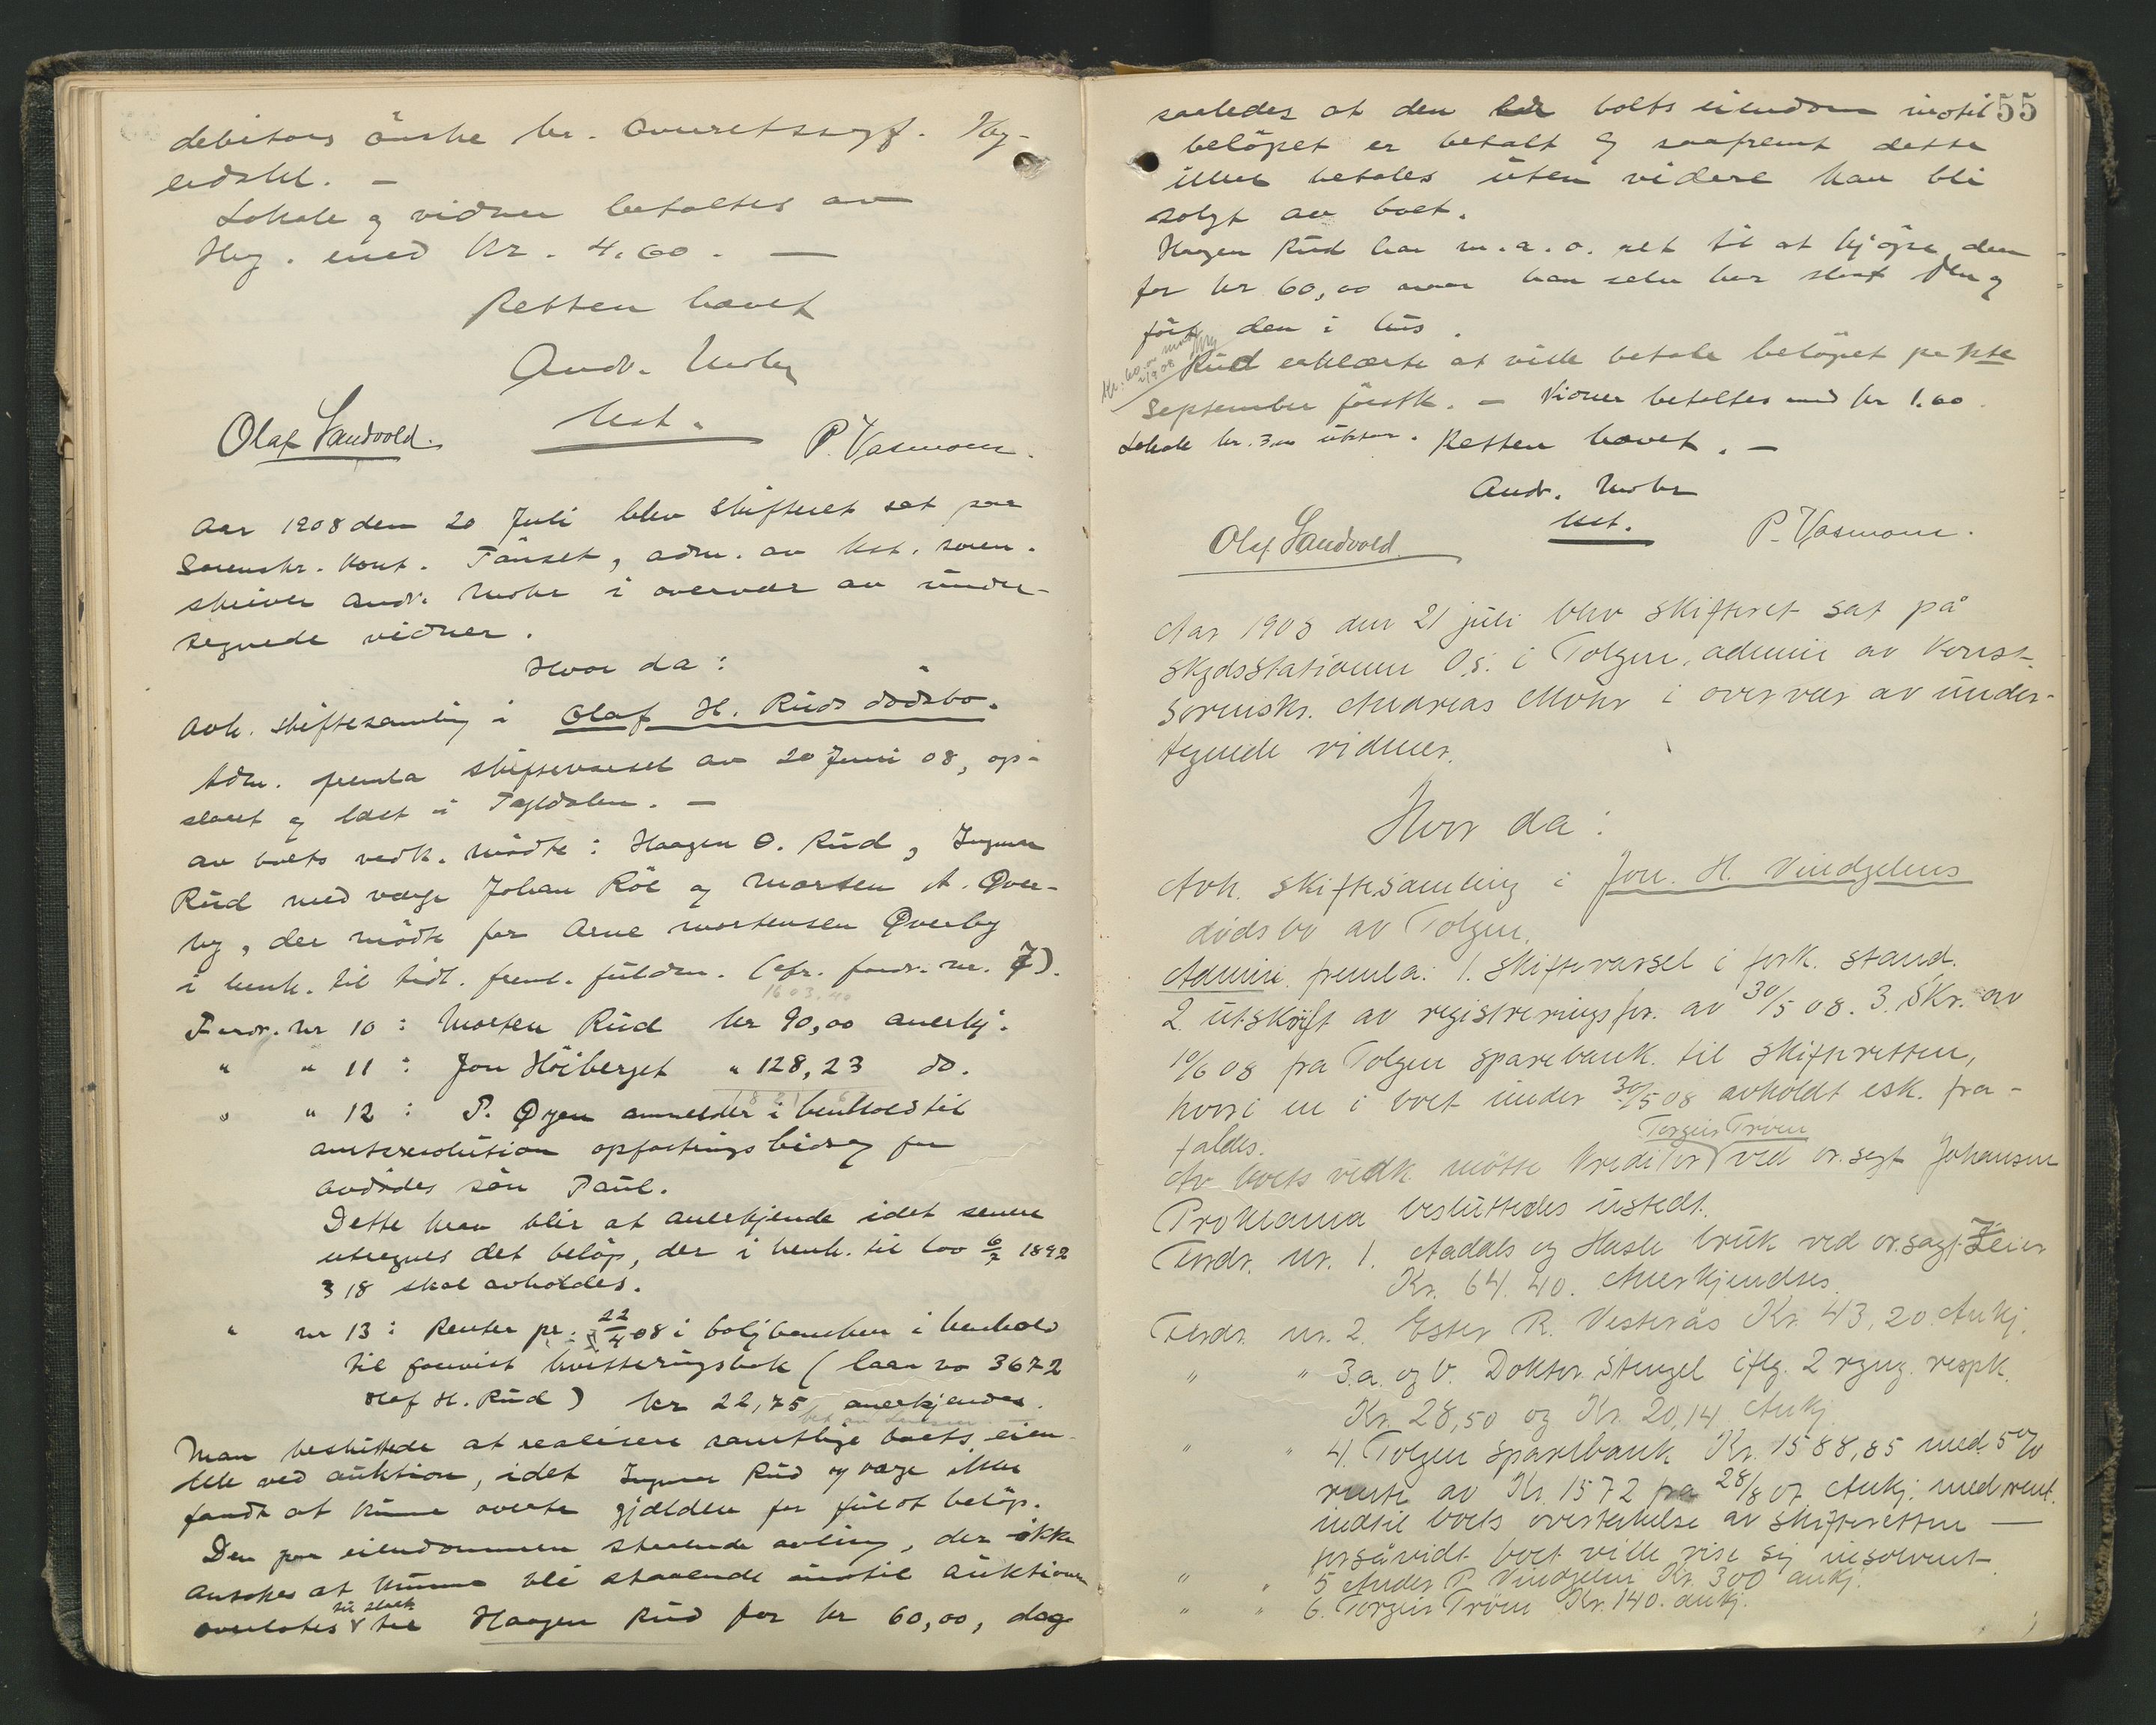 debitors önske hr. Overretssagf. Hy-
eidstel. —
Lokale og vidner betaltes av
Hy. med kr. 4.60. —
Retten hævet
Andr. Mohr
kst.
Olaf Sandvold.
P. Vasmoen.
Aar 1908 den 20 Juli blev skifteret sat paa
Sorenskr. kont. Tönset, adm. av kst. soren-
skriver Andr. Mohr i overvær av under-
tegnede vidner.
Hvor da:
Avh. skiftesamling i Olaf H. Ruds dödsbo.
Adm. fremla skiftevarsel av 20 Juni 08, op-
slaaet og læst i Tyldalen. —
av boets vedk. mödte: Haagen O. Rud, Ingeborg
Rud med verge Johan Röe og Morten A. Øver-
by, der mödte for Arne Mortensen Øverby
i henh. til tidl. freml. fuldm. (cfr. fordr. nr. 7).
1603.40
Fordr. nr 10: Morten Rud kr 90,00 anerkj.
" " 11: Jon Höiberget " 128,23 do.
" " 12: P. Øyen anmelder i henhold til
amtsresolution opfostringsbidrag for
avdödes sön Paul.
Dette krav blir at anerkjende idet senere
utregnes det belöp, der i henh. til lov 6/7 1892
§ 18 skal avholdes.
" nr 13: Renter pr. 22/4 08 i boligbanken i henhold
til forevist kvitteringsbok (laan no 3672
Olaf H. Rud) kr 22,75 anerkjendes.
Man besluttede at realisere samtlige boets eien-
dele ved auktion, idet Ingeborg Rud og verge ikke
fandt at kunne overta gjælden for fuldt belöp.
Den paa eiendommen staaende avling, der ikke
ansökes at kunne bli staaende indtil auktionen
til slaat
overlates til Haagen Rud for kr 60,00, dog
55
saaledes at den er boets eiendom indtil
belöpet er betalt og saafremt dette
ikke betales uten videre kan bli
solgt av boet.
Haagen Rud har m.a.o. ret til at kjöpe den
for kr 60,00 naar han selv har slaat den og
fört den i hus.
Rud erklærte at ville betale belöpet pr 1ste
September förstk. — Vidner betaltes med kr 1.60.
Lokale kr. 3,00 . Retten hævet. —
Andr. Mohr
kst.
Olaf Sandvold
P. Vasmoen.
Aar 1908 den 21 juli blev skifteret sat på
skydsstationen O.s. i Tolgen, admin av konst.
sorenskr. Andreas Mohr i overvær av under-
tegnede vidner.
Hvor da:
Avh. skiftesamling i Jon H. Vindgelens
dödsbo av Tolgen.
Admini. fremla: 1. Skiftevarsel i fork. stand.
2. utskrift av registreringsfor. av 30/5 08. 3. Skr. av
10/6 08 fra Tolgen sparebank til skifteretten,
hvori en i boet under 30/5 08 avholdt esk. fra-
faldes.
Torgeir Tröen
Av boets vedk. mötte kreditor ved or.sagf. Johansen
Proklama besluttedes utstedt.
Fordr. nr. 1. Aadals og Hasle bruk ved or.sagf. Zeier
Kr. 64.40. Anerkjendtes.
Fordr. nr. 2. Ester R. Vesterås Kr. 43,20 Ankj.
" " 3.a. og b. Doktor Stengel iflg. 2 rgng. respk.
Kr. 28,50 og Kr. 20,14. Ankj.
" " 4. Tolgen sparebank Kr. 1588,85 med 5%
rente av Kr. 1572 fra 28/8 07. Ankj. med rent.
indtil boets overtakelse av skifteretten —
forsåvidt boet ville vise sig insolvent.
" " 5 Anders P. Vindgelen Kr. 300 ankj.
" " 6. Torgeir Tröen Kr. 140. ankj.